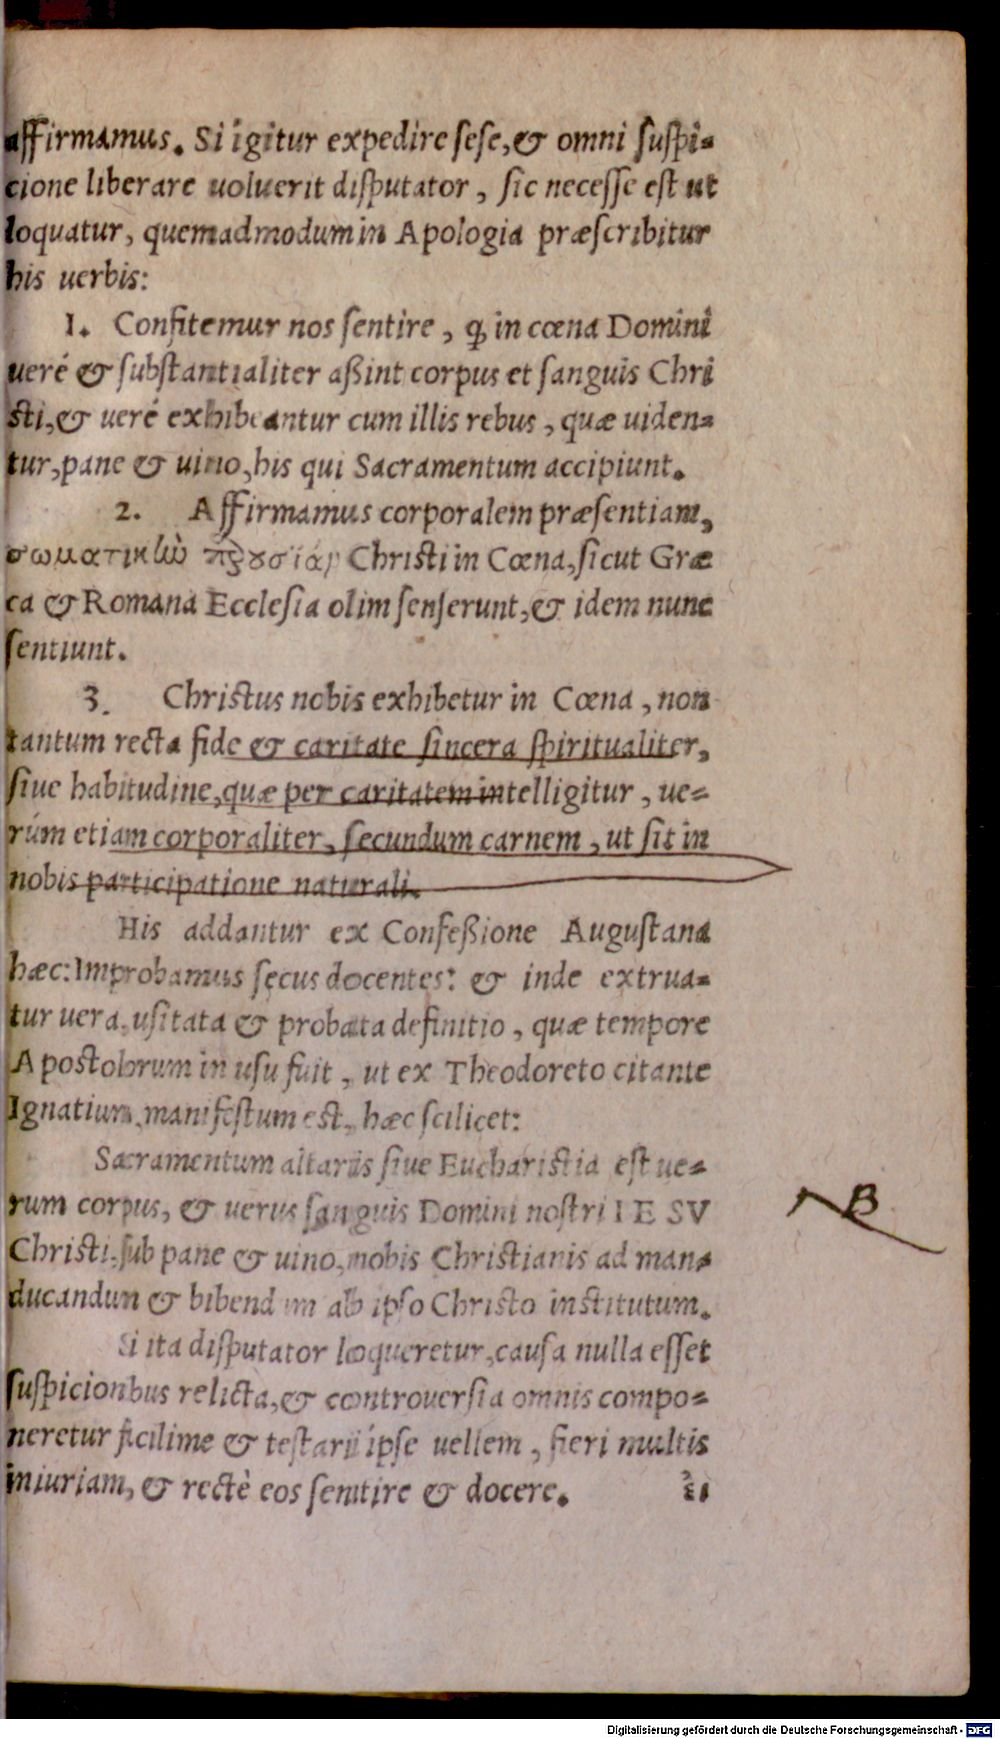 affirmamus. Si igitur expedire sese, & omni suspi-
cione liberare uoluerit disputator, sic necesse est ut
loquatur, quemadmodum in Apologia præscribitur
his uerbis:
1. Confitemur nos sentire, ꝙ in cœna Domini
ueré & substantialiter aßint corpus et sanguis Chri
sti, & ueré exhibeantur cum illis rebus, quæ uiden-
tur, pane & uino, his qui Sacramentum accipiunt.
2. Affirmamus corporalem præsentiam,
σωματικὼ παρουσίαν Christi in Cœna, sicut Græ
ca & Romana Ecclesia olim senserunt, & idem nunc
sentiunt.
3. Christus nobis exhibetur in Cœna, non
tantum recta fide & caritate sincera spiritualiter,
siue habitudine, quæ per caritatem intelligitur, ue-
rúm etiam corporaliter, secundum carnem, ut sit in
nobis participatione naturali.
His addantur ex Confeßione Augustana
hæc: Improbamus secus docentes: & inde extrua-
tur uera, usitata & probata definitio, quæ tempore
Apostolorum in usu fuit, ut ex Theodoreto citante
Ignatium, manifestum est, hæc scilicet:
Sacramentum altaris siue Eucharistia est ue-
rum corpus, & uerus sanguis Domini nostri IESV
Christi, sub pane & uino, nobis Christianis ad man-
ducandum & bibendum ab ipso Christo institutum.
NB
Si ita disputator loqueretur, causa nulla esset
suspicionibus relicta, & controuersia omnis compo-
neretur facilime & testarii ipse uellem, fieri multis
iniuriam, & rectè eos sentire & docere.
Digitalisierung gefördert durch die Deutsche Forschungsgemeinschaft - DFG